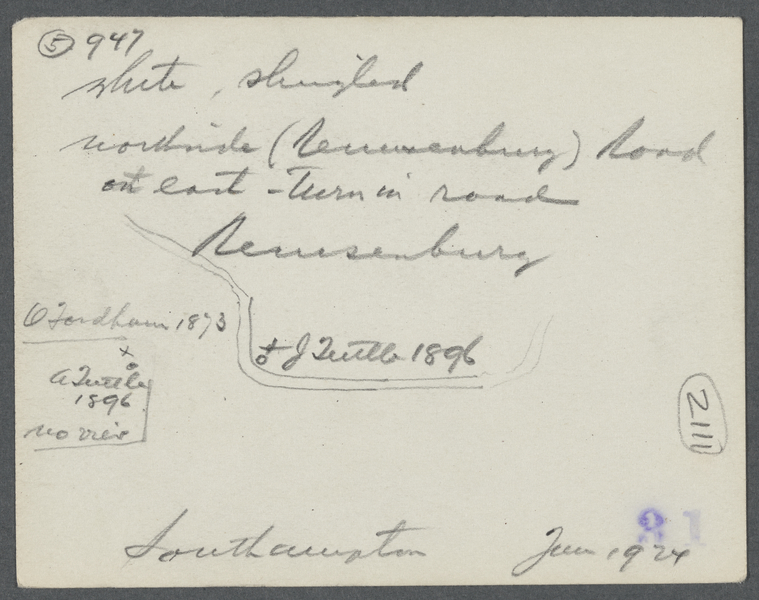 ⑤ 947
white, shingled
northside (Remsenburg) Road
on east - Turn in road
Remsenburg
O Fordham 1873
J Tuttle 1896
A Tuttle
1896
no view
2111
31
Southampton Jan 1924